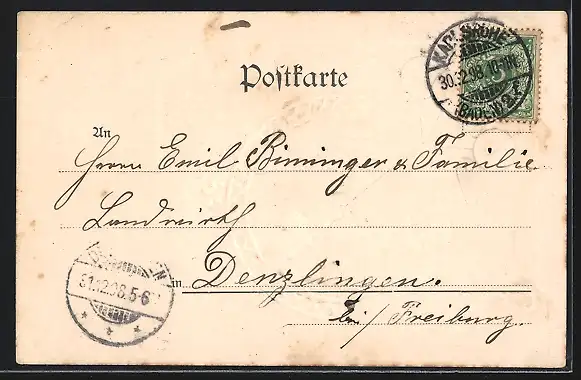 Postkarte
KARLSRUHE
30.12.98.10-11N.
(BADEN) 2
An
Herrn Emil Binninger & Familie
Landwirth
in Denzlingen.
bei / Freiburg.
31.12.98.5-6